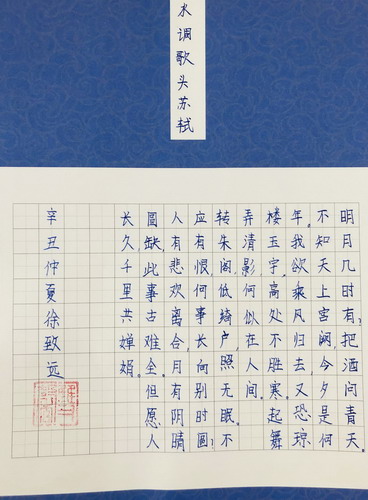 水调歌头苏轼
明月几时有?把酒问青天。
不知天上宫阙,今夕是何
年。我欲乘风归去,又恐琼
楼玉宇,高处不胜寒。起舞
弄清影,何似在人间。
转朱阁,低绮户,照无眠。不
应有恨,何事长向别时圆?
人有悲欢离合,月有阴晴
圆缺,此事古难全。但愿人
长久,千里共婵娟。
辛丑仲夏徐致远